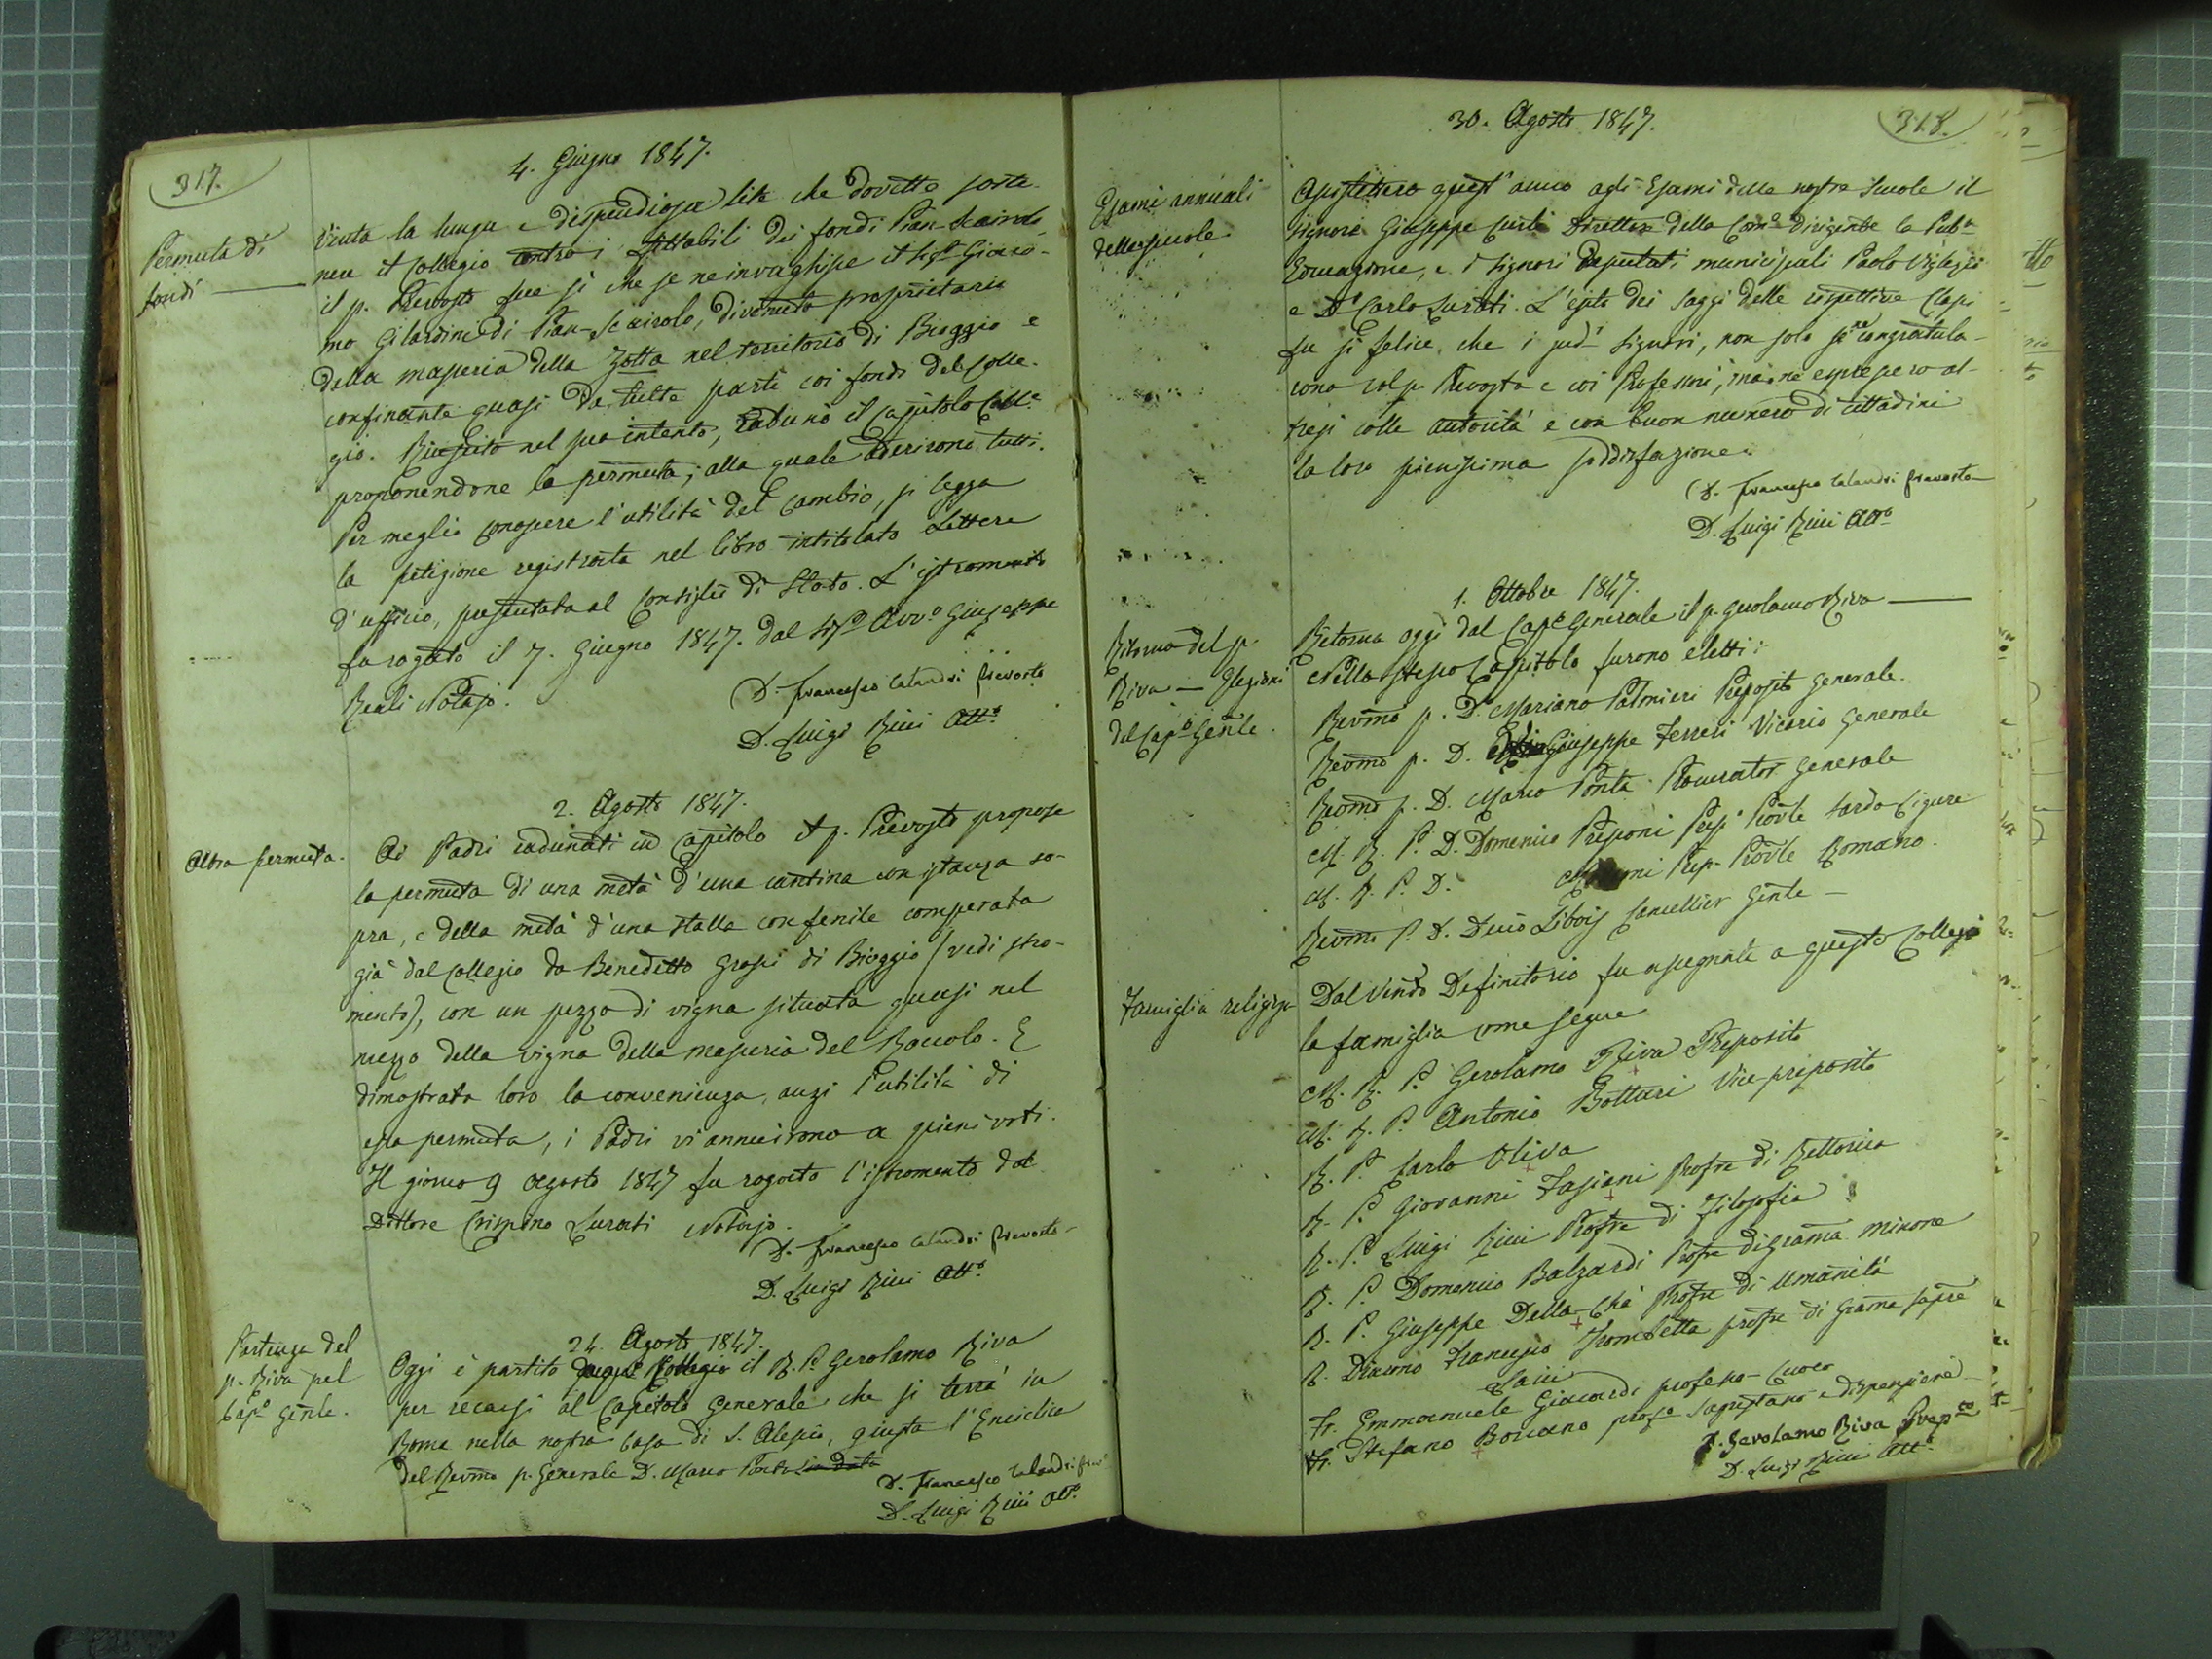 317.
4. Giugno 1847.
Permuta di
fondi
Vinta la lunga e dispendiosa lite che dovette soste-
nere il Collegio contro i fittabili dei fondi Pian-Scairolo,
il p. Prevosto fece sì che se ne invaghisse il Sigr Giaco-
mo Gilardini di Pian-Scairolo, divenuto proprietario
della masseria della Zotta nel territorio di Bioggio e
confinante quasi da tutte parti coi fondi del Colle-
gio. Riuscito nel suo intento, radunò il Capitolo Colle
proponendone la permuta; alla quale aderirono tutti.
Per meglio conoscere l'utilità del cambio, si legga
la petizione registrata nel libro intitolato Lettere
d'ufficio, presentata al Consiglio di Stato. L'istromento
fu rogato il 7. Giugno 1847. dal Sigr Avvo Giuseppe
Reali Notajo.
D. Francesco Calandri Prevosto
D. Luigi Rini Atto
2. Agosto 1847.
Altra permuta.
Ai Padri radunati in Capitolo il p. Prevosto propose
la permuta di una metà d'una cantina con istanza so-
pra, e della metà d'una stalla con fenile comperata
già dal Collegio da Benedetto Grassi di Bioggio (vedi stro-
mento), con un pezzo di vigna situata quasi nel
mezzo della vigna della masseria del Roccolo. E
dimostrata loro la convenienza, anzi l'utilità di
essa permuta, i Padri vi annuirono a pieni voti.
Il giorno 9 agosto 1847 fu rogato l'istromento dal
Dottore Crispino Lurati Notajo.
D. Francesco Calandri Prevosto
D. Luigi Rini Atto
24. Agosto 1847.
Partenza del
p. Riva pel
Capo Genle.
Oggi è partito il R. P. Gerolamo Riva
per recarsi al Capitolo Generale che si terrà in
Roma nella nostra Casa di S. Alessio, giusta l'Enciclica
del Revmo p. Generale D. Marco Ponta in data
D. Francesco Calandri Prevo
D. Luigi Rini Atto
318.
30. Agosto 1847.
Esami annuali
delle scuole.
Assistettero quest'anno agli Esami delle nostre Scuole il
Signore Giuseppe Curti Direttore della Come dirigente la Puba
Educazione, e i Signori Deputati municipali Paolo Viglezio
e Dr Carlo Lurati. L'esito dei saggi delle rispettive Classi
fu sì felice, che i sudi Signori, non solo se ne congratula-
rono col p. Prevosto e coi Professori, ma ne espressero al-
tresì colle autorità e con buon numero di cittadini
la loro pienissima soddisfazione.
D. Francesco Calandri Prevosto
D. Luigi Rini Atto
1. Ottobre 1847.
Ritorno del p.
Riva — Elezioni
del Capo Genle.
Ritorna oggi dal Capo Generale il p. Gerolamo Riva
Nello stesso Capitolo furono eletti:
Revmo p. D. Mariano Palmieri Preposito Generale.
Revmo p. D. Giuseppe Ferreri Vicario Generale
Revmo p. D. Marco Ponta Procurator Generale
M. R. P. D. Domenico Pressoni Prepo Provle Sardo Ligure
M. R. P. D. Prep. Provle Romano.
Revmo P. D. Decio Libois Cancellier Genle —
Famiglia religiosa
Dal Vendo Definitorio fu assegnata a questo Collegio
la famiglia come segue
M. R. P. Gerolamo Riva Preposito
M. R. P. Antonio Bottari Vice-preposito
R. P. Carlo Oliva
R. P. Giovanni Fasiani Profre di Rettorica
R. P. Luigi Rini Profre di Filosofia
R. P. Domenico Balzardi Profre di Grama minore
R. P. Giuseppe Della-Chà Profre di Umanità
R. Diacono Francesco Trombetta profre di Grama supre
Laici
Fr. Emmanuele Giacardi professo - Cuoco
Fr. Stefano Boccano profso Sagrestano e dispensiere
D. Gerolamo Riva Prepto
D. Luigi Rini Atto